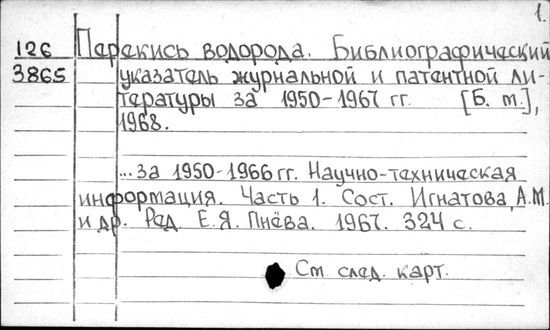 1.
126 Перекись водорода. Библиографический
3865 указатель журнальной и патентной ли-
тературы за 1950-1967 гг. [Б. м.],
1968.
...за 1950-1966 гг. Научно-техническая
информация. Часть 1. Сост. Игнатова, А.М.
и др. Ред. Е.Я. Пнёва. 1967. 324 с.
См след. карт.